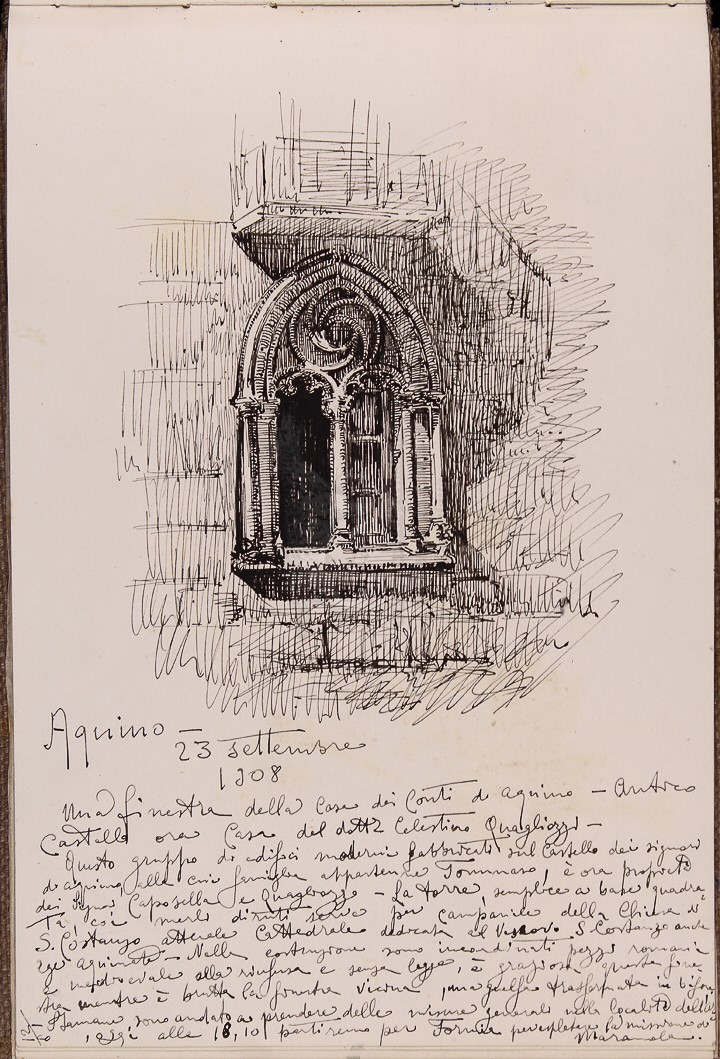 Aquino —
23 settembre
1908
Una finestra della Casa dei Conti d'Aquino — Antico
Castello ora Casa del dott. Celestino Quagliozzi —
Questo gruppo di edifici moderni fabbricati sul Castello dei signori
di Aquino alla cui famiglia appartenne Tommaso, è ora proprietà
dei Signori Caposella e Quagliozzi — la torre, semplice a base quadra
ta, coi merli diruti serve per campanile della Chiesa di
S. Costanzo attuale Cattedrale dedicata al Vescovo S. Costanzo
aquinate — Nella costruzione sono incastrati pezzi romani
e medioevale alla rinfusa e senza legge, è graziosa questa fine
stra mentre è brutta la finestra vicina, una guelfa trasformata in bifora
Stamane sono andato a prendere delle misure generali nella località
alle 18,10 partiremo per Formia per la missione di
Maranola.